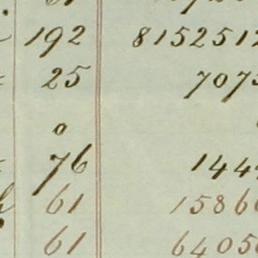 192 8152512
25 7075
0
76 144
61 1586
61 6405